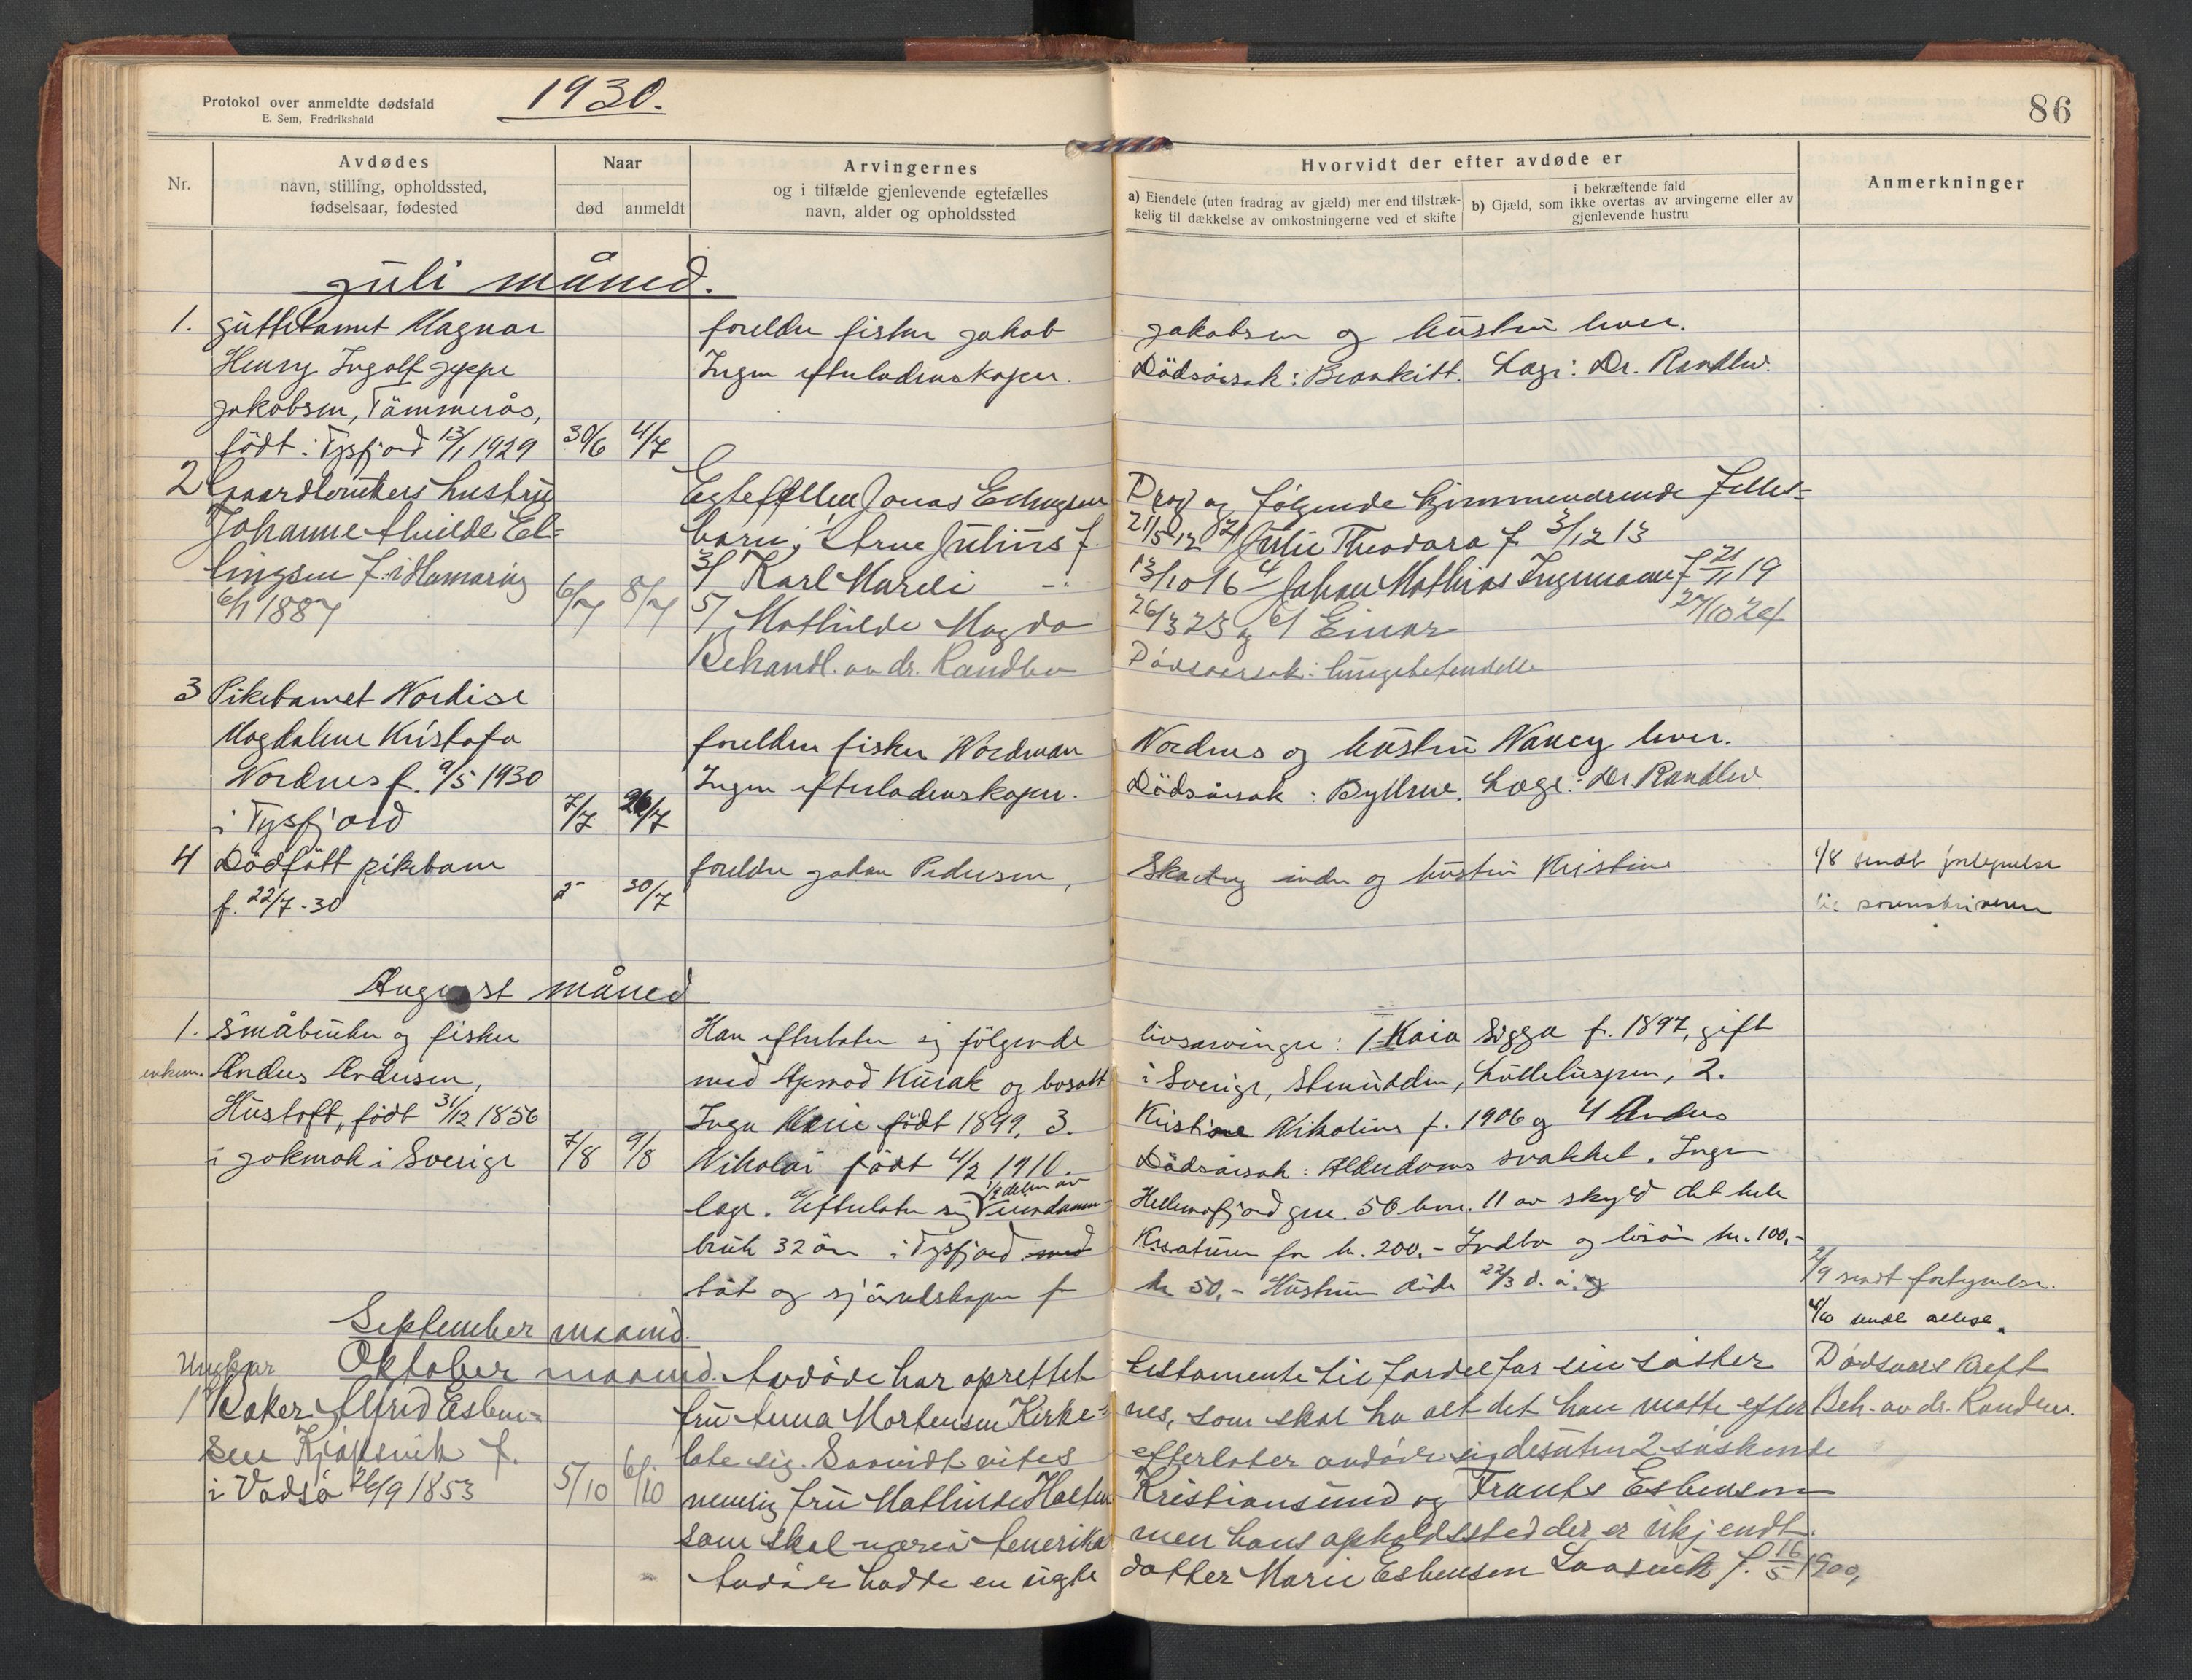 Protokol over anmeldte dødsfald
E. Sem, Fredrikshald
1930.
86
Nr.
Avdødes
navn, stilling, opholdssted,
fødselsaar, fødested
Naar
død
anmeldt
Arvingernes
og i tilfælde gjenlevende egtefælles
navn, alder og opholdssted
Hvorvidt der efter avdøde er
a) Eiendele (uten fradrag av gjæld) mer end tilstræk-
kelig til dækkelse av omkostningerne ved et skifte
i bekræftende fald
b) Gjæld, som ikke overtas av arvingerne eller av
gjenlevende hustru
Anmerkninger
Juli måned.
1. Guttebarnet Magnar foreldre fisker Jakob Jakobsen og hustru lever.
Henry Ingolf Jeppe Ingen efterladenskaper. Dödsårsak: Bronkitt. Læge: Dr. Randlev.
Jakobsen, Tömmerås,
født: Tysfjord 13/1 1929 30/6 4/7
2 Gaardbrukers hustru Egtefellen Jonas Ellingsen Drag og følgende hjemmeværende felles-
Johanne Alvilde El- barn: 1/ Arne Julius f. 21/5 12 2/ Julie Theodora f 3/12 13
lingsen f. i Hamarøy 6/7 8/7 3/ Karl Mareli -:- 13/10 16 4/ Johan Mathias Ingemann f 21/11 19
6/1 1887 5/ Mathilde Magda 26/3 23 og 6/ Einar 27/10 24
Behandl. av dr. Randlev Dødsaarsak: lungebetendelse
3 Pikebarnet Nordise
Magdalene Kristofa foreldre fisker Nordman Nordnes og hustru Nancy lever.
Nordnes f. 9/5 1930 Ingen efterladenskaper. Dödsårsak: Byllene. Læge: Dr. Randlev
i Tysfjord 7/7 26/7
4 Dödfött pikebarn foreldre Johan Pedersen, indre og hustru Kristine 1/8 sendt fortegnelse
f. 22/7-30 30/7 til sorenskriveren
August måned
1. Småbruker og fisker Han efterlater sig følgende livsarvinger: 1. Kaia Sigga f. 1897, gift
enkem. Anders Andersen, med Kurak og bosatt i Sverige, Stenudden, 2.
Hustoft, født 31/12 1856 Inga Marie født 1899, 3. Kristine Nikoline f. 1906 og 4 Anders
i Jokmok i Sverige 7/8 9/8 Nikolai født 4/2 1910. Dödsårsak: Alderdoms svakhet. Ingen
læge. Efterlater sig 1/2 delen av eiendommen Hellemofjord gnr. 50 bnr. 11 av skyld det hele
bruk 32 øre i Tysfjord med Kreaturer for kr. 200.- Indbo og lösöre kr. 100.-
båt og sjöredskaper for kr 50.- Hustruen döde 22/3 d. å. og 2/9 sendt fortegnelse.
4/10 sendt attest.
September maaned.
Oktober maaned. Avdøde har oprettet testamente til fordel for sin søster Dødsaars Kreft
Ungkar
1 Baker Alfred Esben- fru Anna Mortensen Kirke- nes, som skal ha alt det han maatte efter Beh. av dr. Randlev.
sen Kjøpsvik f. late sig. Saavidt vites efterlater avdøde sig desuten 2 søskende
i Vadsø 26/9 1853 5/10 6/10 nemlig fru Mathilde Holten Kristiansund og Frants Esbensen
som skal være i Amerika men hans opholdssted der er ukjendt.
Avdøde hadde en uegte datter Marie Esbensen f. 16/5 1900,